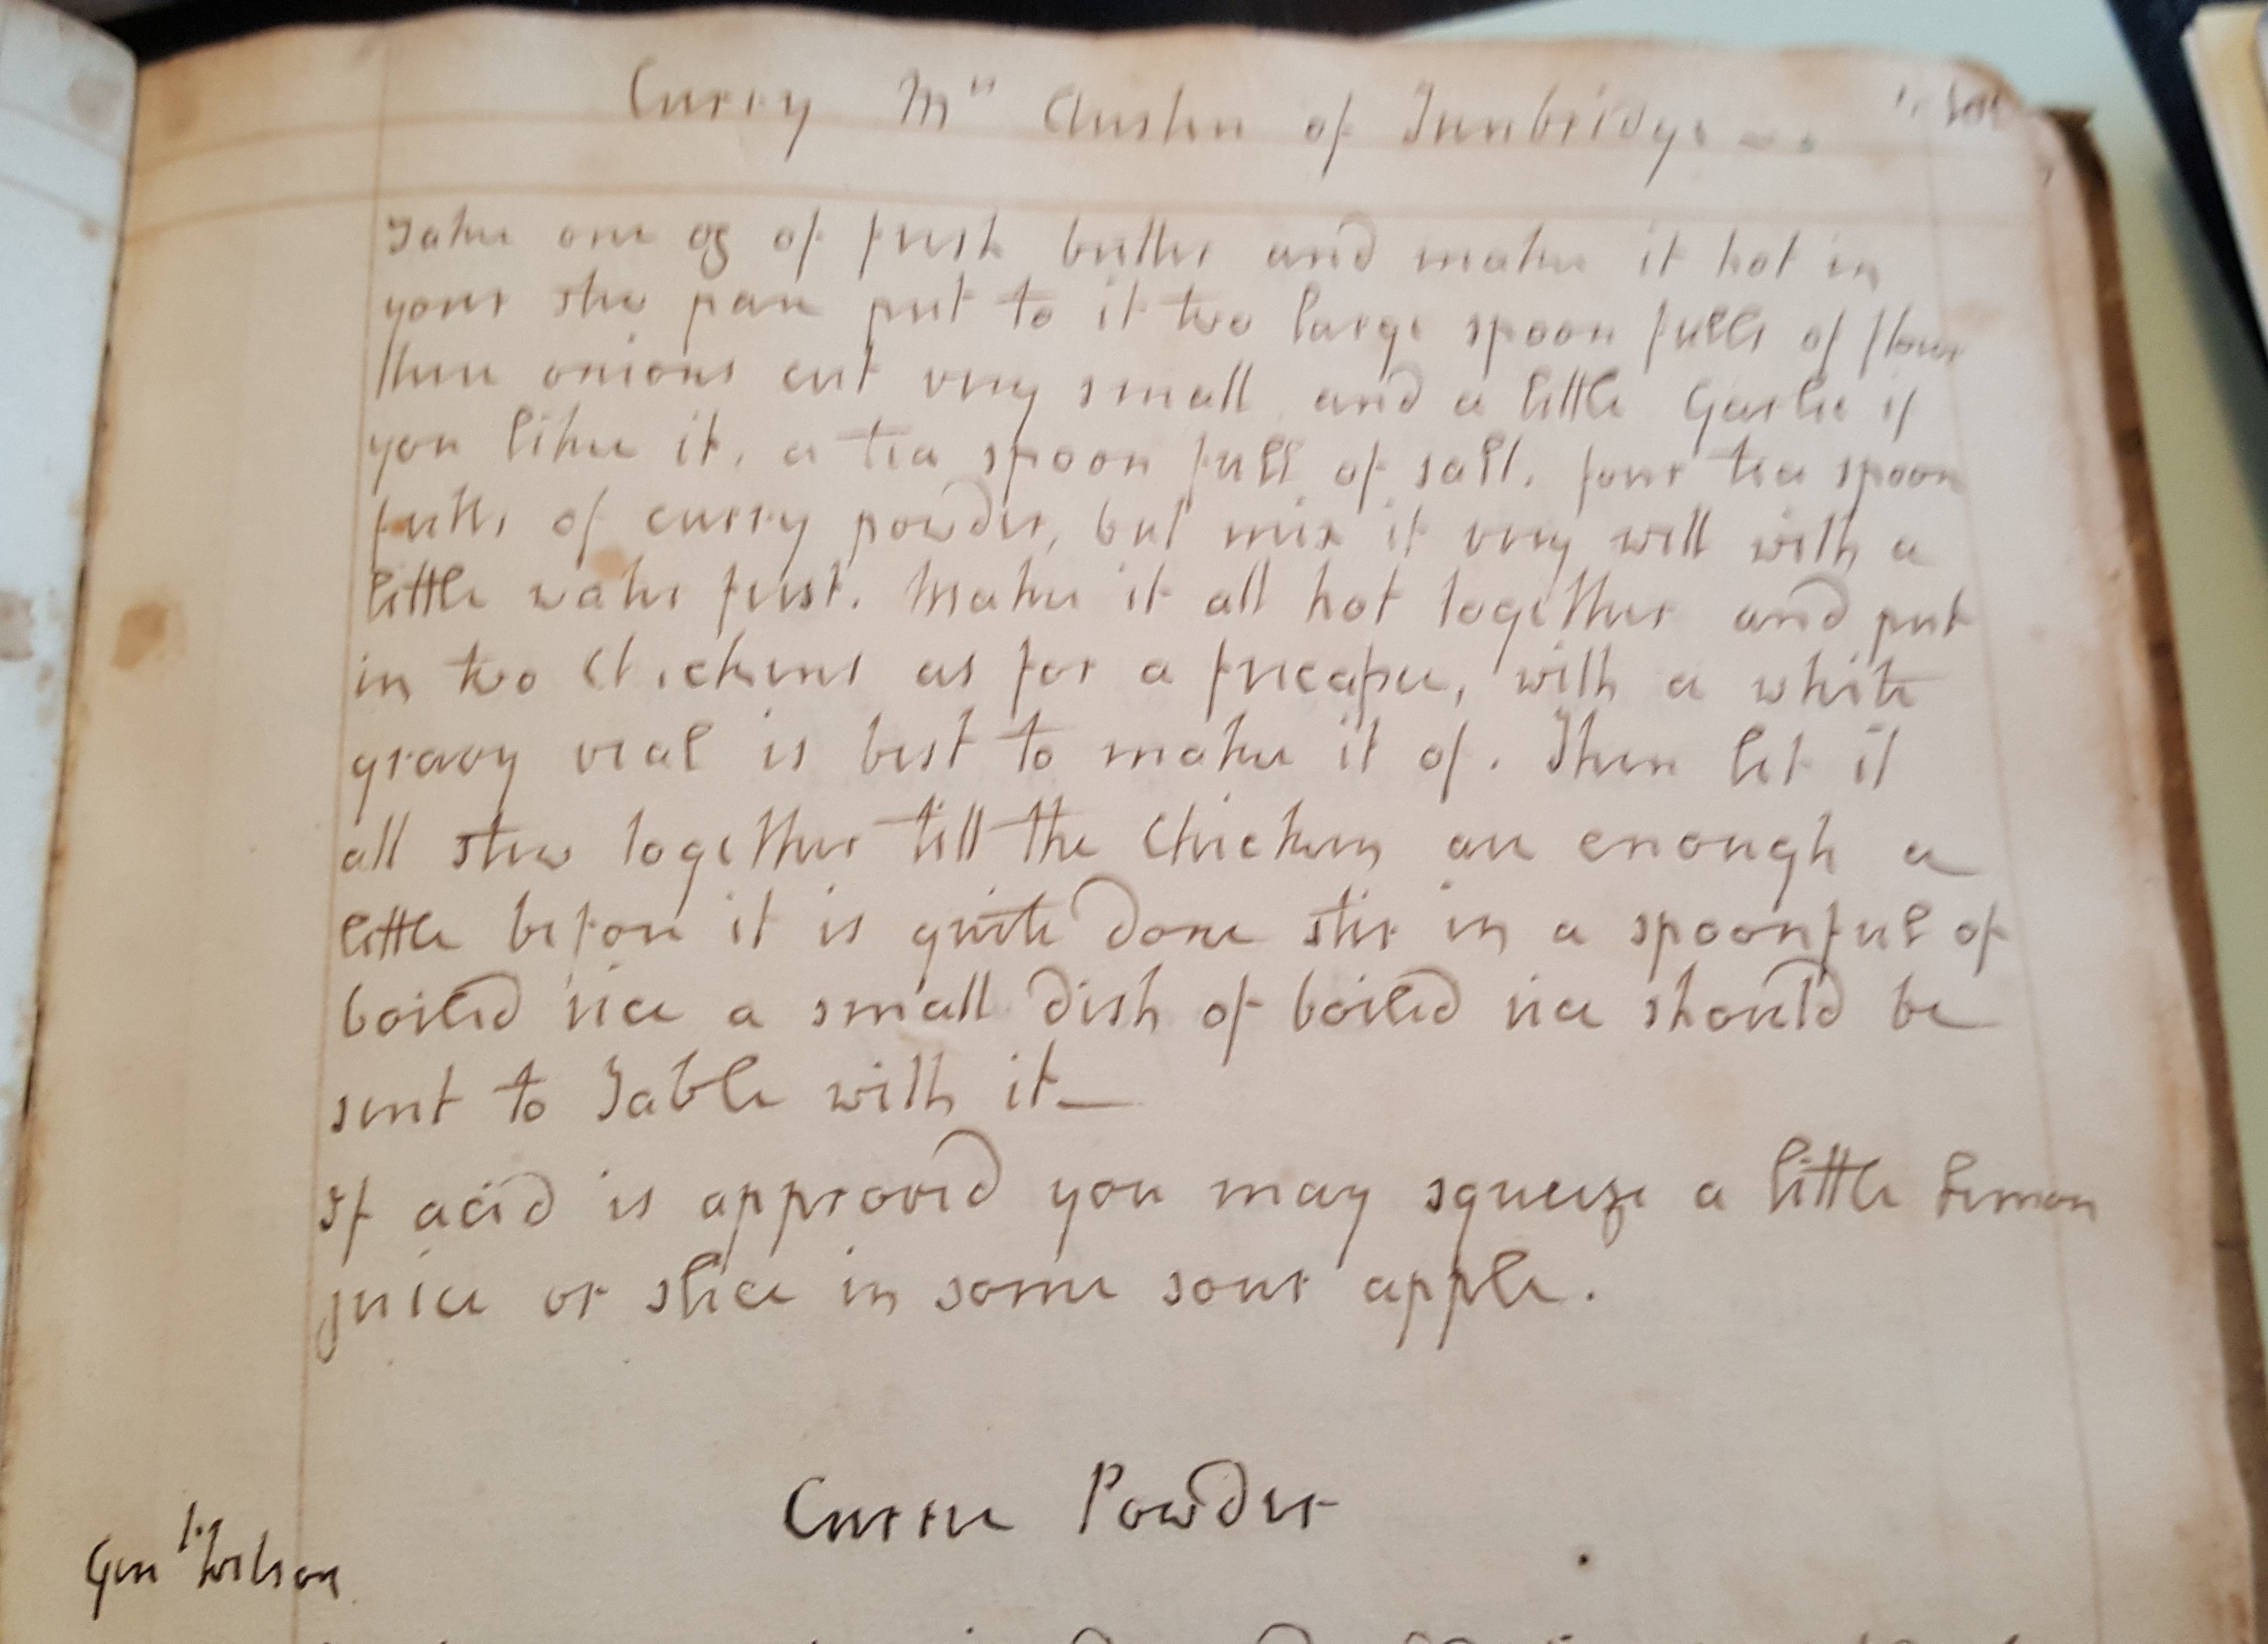 Curry Mrs Austen of Tunbridge
Take one oz of fresh butter and make it hot in
your stew pan put to it two large spoon fulls of flour
three onions cut very small and a little Garlic if
you like it, a tea spoon full of salt, four tea spoon
fulls of curry powder, but mix it very well with a
little water first. Make it all hot together and put
in two Chickens as for a fricassee, with a white
gravy veal is best to make it of. Then let it
all stew together till the Chickens are enough a
little before it is quite done stir in a spoonful of
boiled rice a small dish of boiled rice should be
sent to Table with it
If acid is approved you may squeeze a little Lemon
juice or slice in some sour apple.
Currie Powder
Genl Wilson